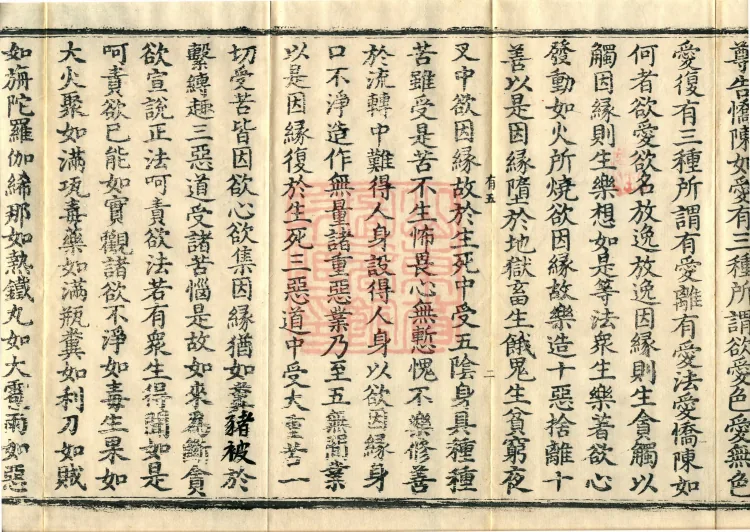 尊告憍陳如愛有三種所謂欲愛色愛無色
愛復有三種所謂有愛離有愛法愛憍陳如
何者欲愛欲名放逸放逸因緣則生貪觸以
觸因緣則生樂想如是等法衆生樂著欲心
發動如火所燒欲因緣故樂造十惡捨離十
善以是因緣墮於地獄畜生餓鬼生貧窮夜
有五
二
叉中欲因緣故於生死中受五陰身具種種
苦雖受是苦不生怖畏心無慙愧不樂修善
於流轉中難得人身設得人身以欲因緣身
口不淨造作無量諸重惡業乃至五無間業
以是因緣復於生死三惡道中受大重苦一
切受苦皆因欲心欲集因緣猶如糞豬被於
繫縛趣三惡道受諸苦惱是故如來爲斷貪
欲宣說正法呵責欲法若有衆生得聞如是
呵責欲已能如實觀諸欲不淨如毒生果如
大火聚如滿瓨毒藥如滿瓶糞如利刀如賊
如旃陀羅伽絺那如熱鐵丸如大雹雨如惡